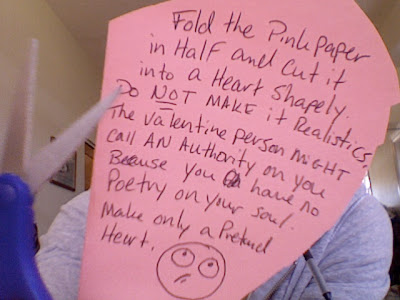 Fold the Pink paper
in Half and cut it
into a Heart Shapely.
Do NOT MAKE it Realistics
The valentine person MIGHT
call AN Authority on you
Because you have no
Poetry on your soul.
Make only a Pretend
Heart.